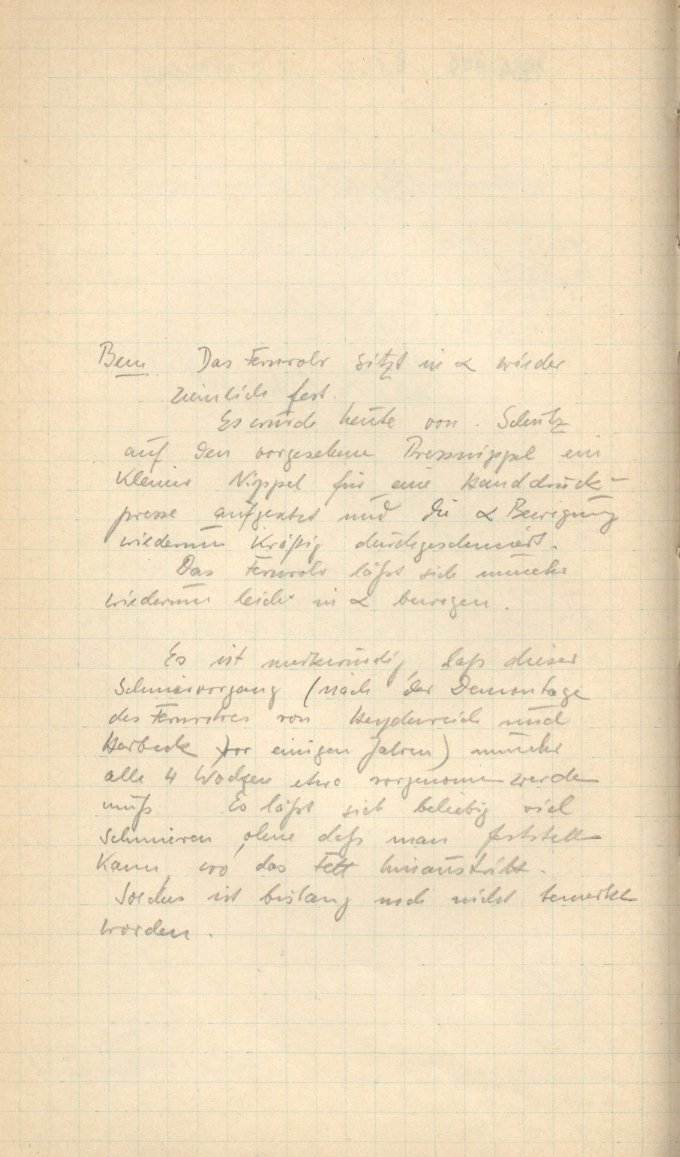 Bem. Das Fernrohr sitzt in α wieder
ziemlich fest.
Es wurde heute von Schutz
auf den vorgesehene Pressnippel ein
kleiner Nippel für eine Handdruck-
presse aufgesetzt und die α Bewegung
wiederum kräftig durchgeschmiert.
Das Fernrohr läßt sich nunmehr
wiederum leicht in α bewegen.
Es ist merkwürdig, daß dieser
Schmiervorgang (nach der Demontage
des Fernrohres von Heydenreich und
Harbeck vor einigen Jahren) nunmehr
alle 4 Wochen etwa vorgenommen werden
muß. Es läßt sich beliebig viel
schmieren, ohne daß man feststellen
kann, wo das Fett hinaustritt.
Solches ist bislang noch nicht bemerkt
worden.